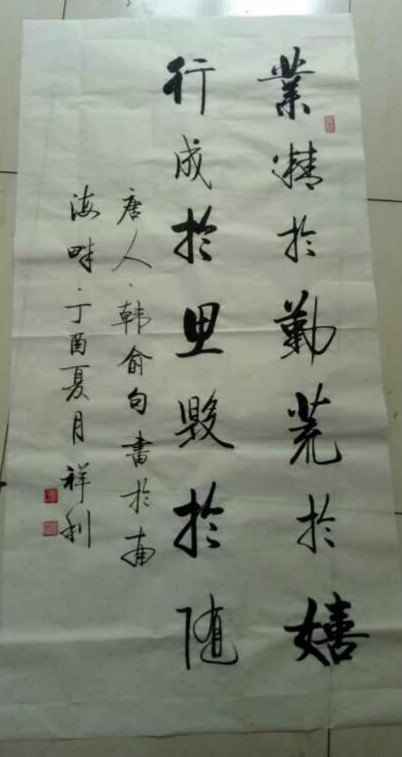 業精於勤荒於嬉
行成於思毀於随
唐人·韩俞句書於南
海畔·丁酉夏月祥利